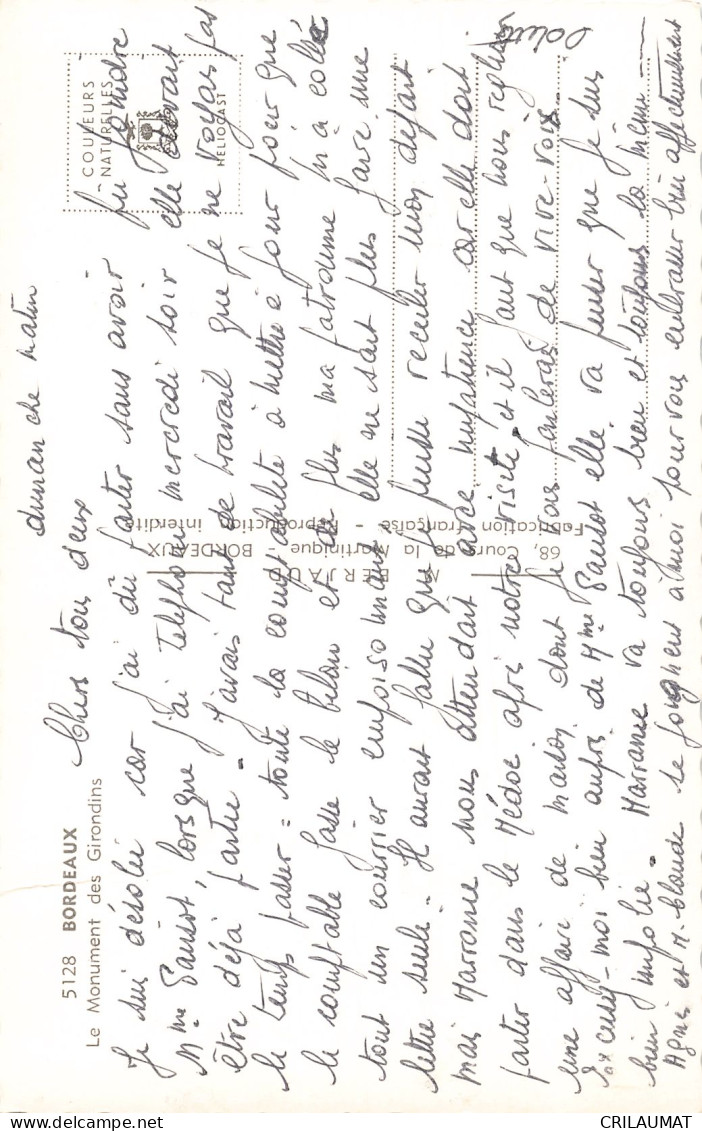 5128 BORDEAUX
Le Monument des Girondins
COULEURS
NATURELLES
HELIOCAST
M. BERJAUD
68, Cours de la Martinique - BORDEAUX
Fabrication française - Reproduction interdite
dimanche matin
Chers tous deux
Je suis désolé car j'ai dû partir sans avoir pu joindre
Mme Pausot, lorsque j'ai téléphoné mercredi soir elle devait
être déjà partie - J'avais tant de travail que je ne voyais pas
le temps passer = toute la comptabilité à mettre à jour pour que
le comptable fasse le bilan et de plus ma patronne m'a collé
tout un courrier empoisonnant elle ne sait plus faire une
lettre seule - Il aurait fallu que je puisse reculer mon départ
mais Marraine nous attendait avec impatience car elle doit
partir dans le Médoc après notre visite, et il faut que nous réglions
une affaire de maison dont je vous parlerai de vive-voix
Excusez-moi bien auprès de Mme Pausot elle va penser que je suis
bien impolie - Marraine va toujours bien et toujours la même -
Agnès et M. Claude se joignent à moi pour vous embrasser bien affectueusement
CRILAUMAT